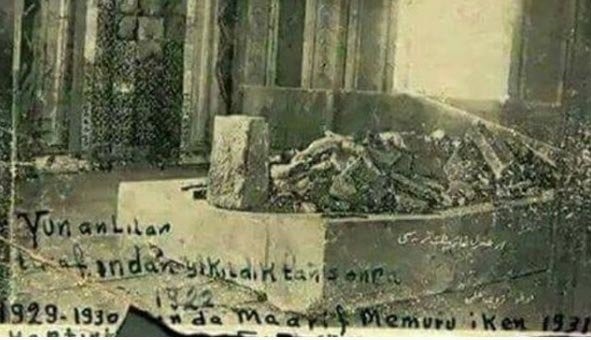 Yunanlılar
tarafından yıkıldıktan sonra
1922
1929-1930 nda Maarif Memuru iken 1931
ارطغرل غازی تربه سی